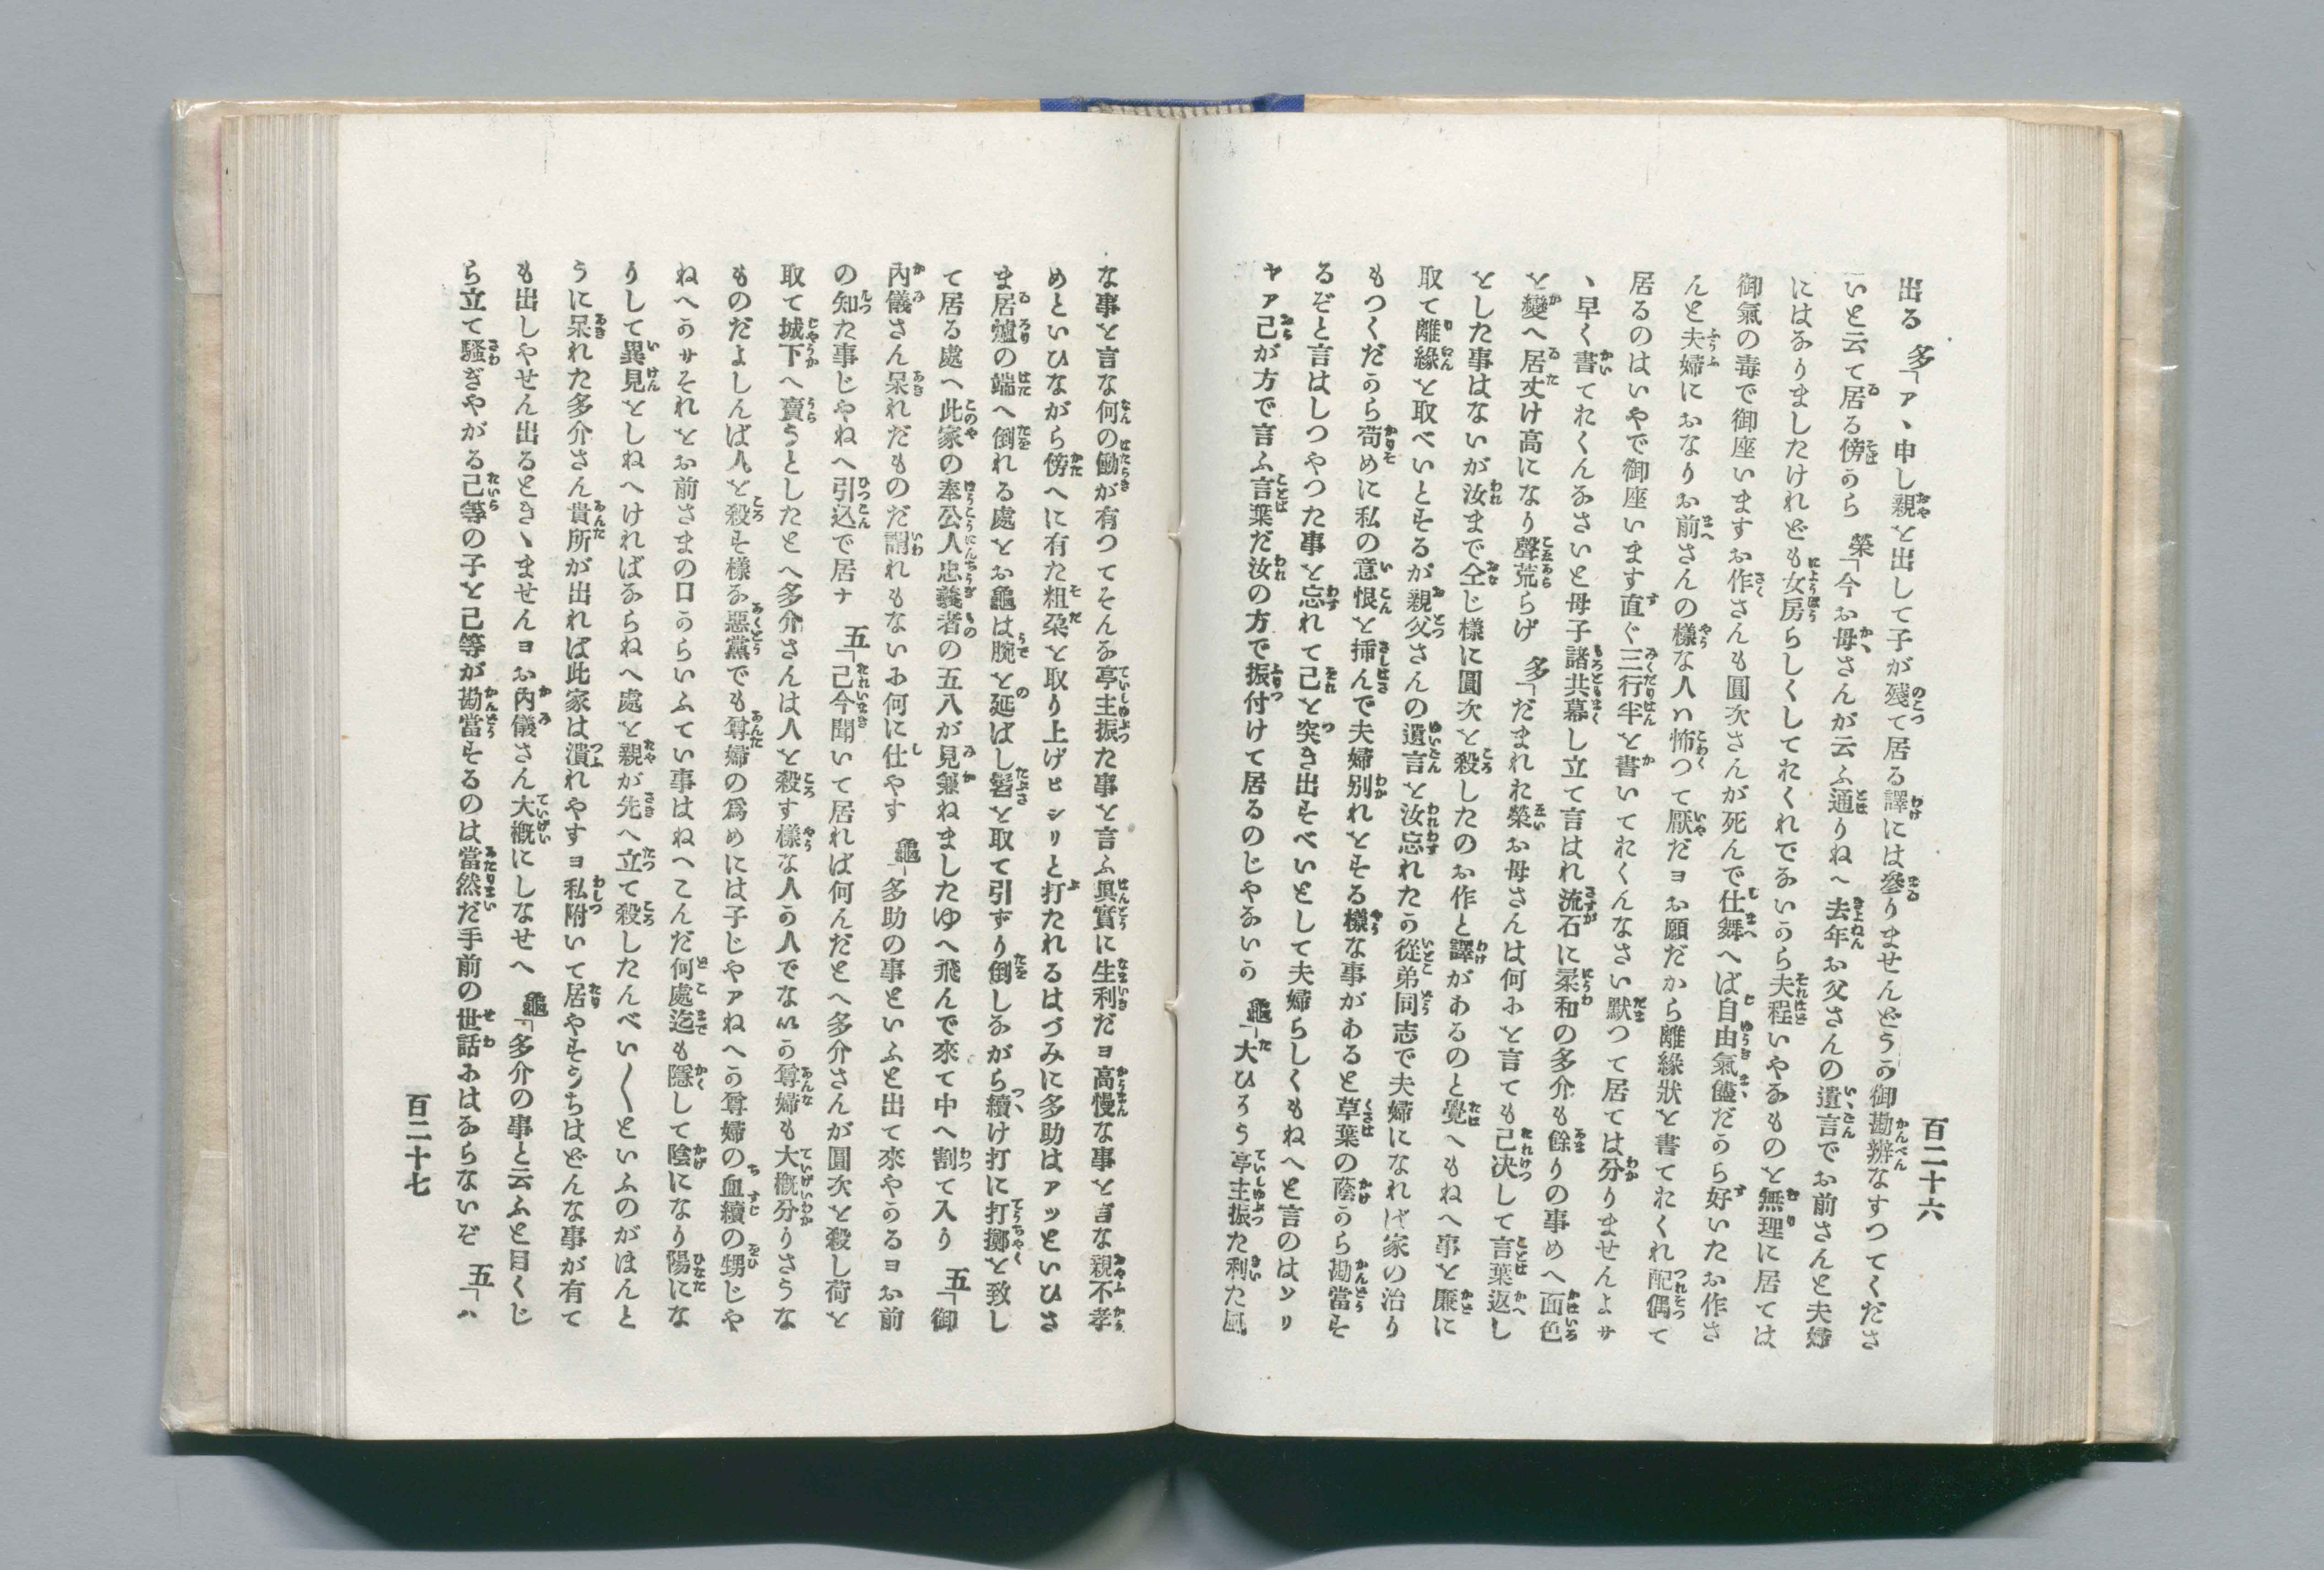 百二十六
出る 多「アヽ申し親を出して子が殘て居る譯には參りませんどうか御勘辦なすつてくださ
いと云て居る傍から 榮「今お母さんが云ふ通りねへ去年お父さんの遺言でお前さんと夫婦
にはなりましたけれども女房らしくしておくれでないから夫程いやなものを無理に居ては
御氣の毒で御座いますお作さんも圓次さんが死んで仕舞へば自由氣儘だから好いたお作さ
んと夫婦におなりお前さんの樣な人い怖つて厭だヨお願だから離緣狀を書ておくれ配偶て
居るのはいやで御座います直ぐ三行半を書いておくんなさい默つて居ては分りませんよサ
ヽ早く書ておくんなさいと母子諸共暮し立て言はれ流石に柔和の多介も餘りの事めへ面色
を變へ居丈け高になり聲荒らげ 多「だまれお榮お母さんは何に言ても己决して言葉返し
とした事はないが汝まで仝じ樣に圓次を殺したのお作と譯があるのと覺へもねへ事を廉に
取て離緣を取べいとするが親父さんの遺言を汝忘れたか從弟同志で夫婦になれば家の治り
もつくだから苟めに私の意恨を挿んで夫婦別れをする樣な事があると草葉の蔭から勘當す
るぞと言はしつやつた事を忘れて己を突き出すべいとして夫婦らしくもねへと言のはソリ
ヤア己が方で言ふ言葉だ汝の方で振付けて居るのじやないか 龜「大ひろう亭主振た利た風
な事を言な何の働が有つてそんな亭主振た事を言ふ眞實に生利だヨ高慢な事を言な親不孝
めといひながら傍へに有た粗朶を取り上げピシリと打たれるはづみに多助はアッといひさ
ま居爐の端へ倒れる處をお龜は腕を延ばし髻を取て引ずり倒しながら續け打に打擲を致し
て居る處へ此家の奉公人忠義者の五八が見兼ねましたゆへ飛んで來て中へ割て入り 五「御
內儀さん呆れだものだ謂れもないに何に仕やす 龜「多助の事といふと出て來やがるヨお前
の知た事じやねへ引込で居ナ 五「己今聞いて居れば何んだとへ多介さんが圓次を殺し荷を
取て城下へ賣うとしたとへ多介さんは人を殺す樣な人か人でないか尊婦も大概分りさうな
ものだよしんば人を殺す樣な惡黨でも尊婦の爲めには子じやアねへか尊婦の血續の甥じや
ねへかサそれをお前さまの口からいふてい事はねへこんだ何處迄も隱して陰になり陽にな
りして異見をしねへければならねへ處を親が先へ立て殺したんべい〱といふのがほんと
うに呆れた多介さん貴所が出れば此家は潰れやすヨ私附いて居やすうちはどんな事が有て
も出しやせん出るときヽませんヨお內儀さん大概にしなせへ 龜「多介の事と云ふと目くじ
ら立て騷ぎやがる己等の子を己等が勘當するのは當然だ手前の世話にはならないぞ 五「ハ
百二十七